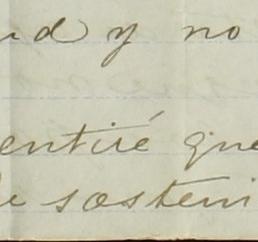 ud y no
entiré que
le sosteni